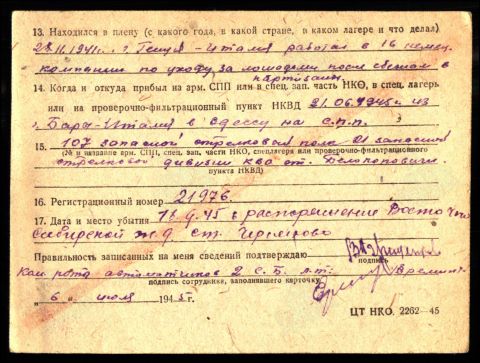 13. Находился в плену (с какого года, в какой стране, в каком лагере и что делал)
28.11.1941 г. Генуя - Италия работал в 16 немец.
компании по уходу за лошадьми после в
партизаны
14. Когда и откуда прибыл на арм. СПП или в спец. зап. часть НКО, в спец. лагерь
или на проверочно-фильтрационный пункт НКВД 21.06.1945 из
Бари - Италия в Одессу на с.п.п.
15. 107 запасной стрелковый полк 21 запасной
(№ и название арм. СПП, спец. зап. части НКО, спецлагеря или проверочно-фильтрационного
стрелковой дивизии КВО ст.
пункта НКВД)
16. Регистрационный номер 21976.
17. Дата и место убытия 9.45 в распоряжение Восточно
Сибирской ж.д. ст. Черемхово
Правильность записанных на меня сведений подтверждаю
подпись
Ком рота автоматчиков 2 С.Б. л-т:
подпись сотрудника, заполнявшего карточку
„6" июля 1945 г.
ЦТ НКО. 2262—45